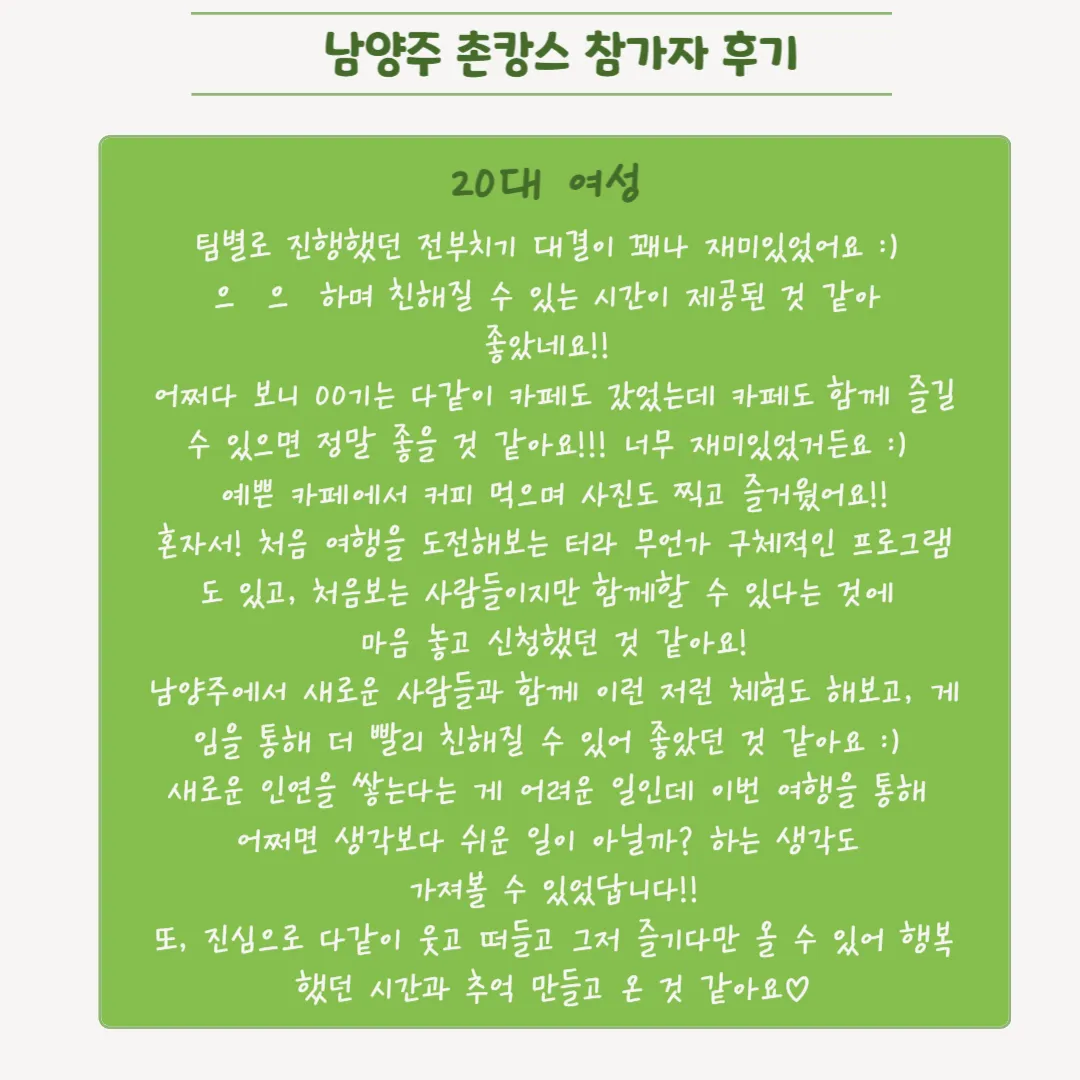 남양주 촌캉스 참가자 후기
20대 여성
팀별로 진행했던 전부치기 대결이 꽤나 재미있었어요 :)
으 으 하며 친해질 수 있는 시간이 제공된 것 같아
좋았네요!!
어쩌다 보니 00기는 다같이 카페도 갔었는데 카페도 함께 즐길
수 있으면 정말 좋을 것 같아요!!! 너무 재미있었거든요 :)
예쁜 카페에서 커피 먹으며 사진도 찍고 즐거웠어요!!
혼자서! 처음 여행을 도전해보는 터라 무언가 구체적인 프로그램
도 있고, 처음보는 사람들이지만 함께할 수 있다는 것에
마음 놓고 신청했던 것 같아요!
남양주에서 새로운 사람들과 함께 이런 저런 체험도 해보고, 게
임을 통해 더 빨리 친해질 수 있어 좋았던 것 같아요 :)
새로운 인연을 쌓는다는 게 어려운 일인데 이번 여행을 통해
어쩌면 생각보다 쉬운 일이 아닐까? 하는 생각도
가져볼 수 있었답니다!!
또, 진심으로 다같이 웃고 떠들고 그저 즐기다만 올 수 있어 행복
했던 시간과 추억 만들고 온 것 같아요♡